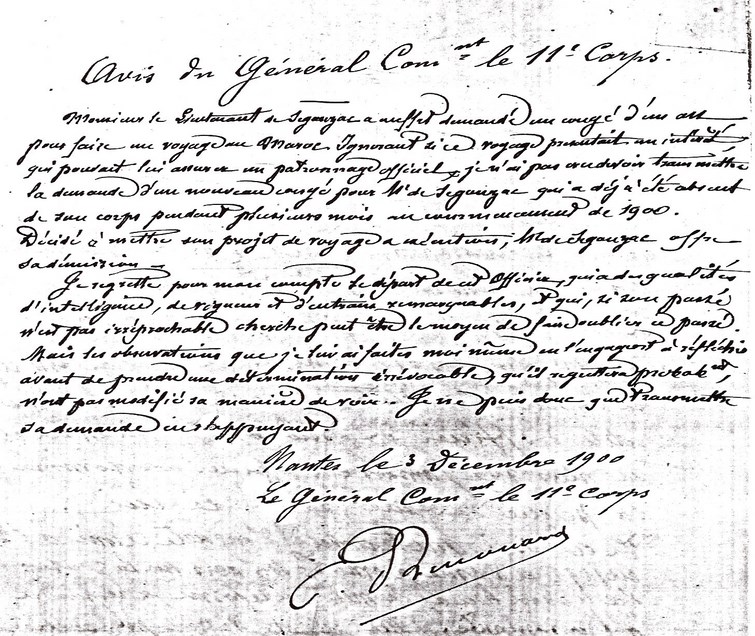 Avis du Général Com^mt le 11^e Corps.
Monsieur le Lieutenant de Segonzac a en effet demandé un congé d'un an
pour faire un voyage au Maroc. Ignorant si ce voyage présentait un intérêt
qui pouvait lui assurer un patronage officiel, je n'ai pas cru devoir transmettre
la demande d'un nouveau congé pour M^r de Segonzac qui a déjà été absent
de son corps pendant plusieurs mois au commencement de 1900.
Décidé à mettre son projet de voyage à exécution, M^r de Segonzac offre
sa démission.
Je regrette pour mon compte le départ de cet Officier, qui a des qualités
d'intelligence, de vigueur et d'entrain remarquables, et qui, si son passé
n'est pas irréprochable cherche peut être le moyen de faire oublier ce passé.
Mais les observations que je lui ai faites moi même en l'engageant à réfléchir
avant de prendre une détermination irrévocable, qu'il regrettera probabl^nt,
n'ont pas modifié sa manière de voir. Je ne puis donc que transmettre
sa demande en l'appuyant.
Nantes le 3 Décembre 1900
Le Général Com^mt le 11^e Corps